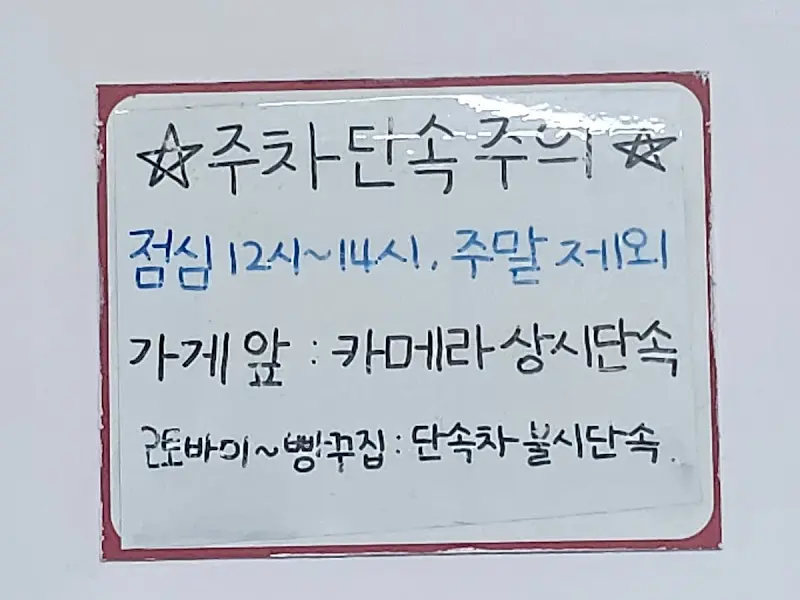 ☆주차단속주의☆
점심 12시~14시, 주말 제외
가게 앞 : 카메라 상시단속
~빵꾸집 : 단속차 불시단속.